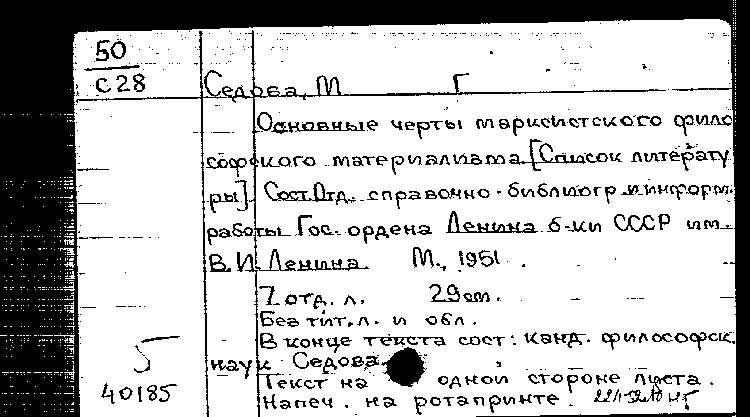 50
С28
Седова, М Г
Основные черты марксистского фило
софского материализма [Список литерату
ры]. Сост. Отд. справочно-библиогр. и информ.
работы Гос. ордена Ленина б-ки СССР им.
В. И. Ленина. М., 1951.
7 отд. л. 29 см.
Без тит. л. и обл.
В конце текста сост: канд. философск.
5
наук Седова
Текст на одной стороне листа.
40185
Напеч. на ротапринте.